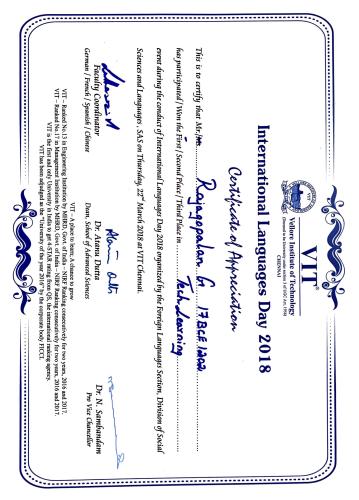 VIT
Vellore Institute of Technology
(Deemed to be University under section 3 of UGC Act, 1956)
CHENNAI
International Languages Day 2018
Certificate of Appreciation
This is to certify that Mr./Ms. Rajagopalan G 17BCE1202
has participated / Won the First / Second Place / Third Place in Tech Learning
event during the conduct of International Languages Day 2018 organized by the Foreign Languages Section, Division of Social
Sciences and Languages, SAS on Thursday, 22nd March 2018 at VIT Chennai.
Faculty Coordinator
German / French / Spanish / Chinese
Dr. Atanu Dutta
Dean, School of Advanced Sciences
Dr. N. Sambandam
Pro Vice Chancellor
VIT – A place to learn; A chance to grow
VIT – Ranked No.13 in Engineering Institution by MHRD, Govt. of India – NIRF Ranking consecutively for two years, 2016 and 2017.
VIT – Ranked No.17 in Management Institution by MHRD, Govt. of India – NIRF Ranking consecutively for two years, 2016 and 2017.
VIT is the first and only University in India to get 4-STAR rating from QS, the international ranking agency.
VIT has been adjudged as the "University of the year 2016" by the corporate body FICCI.